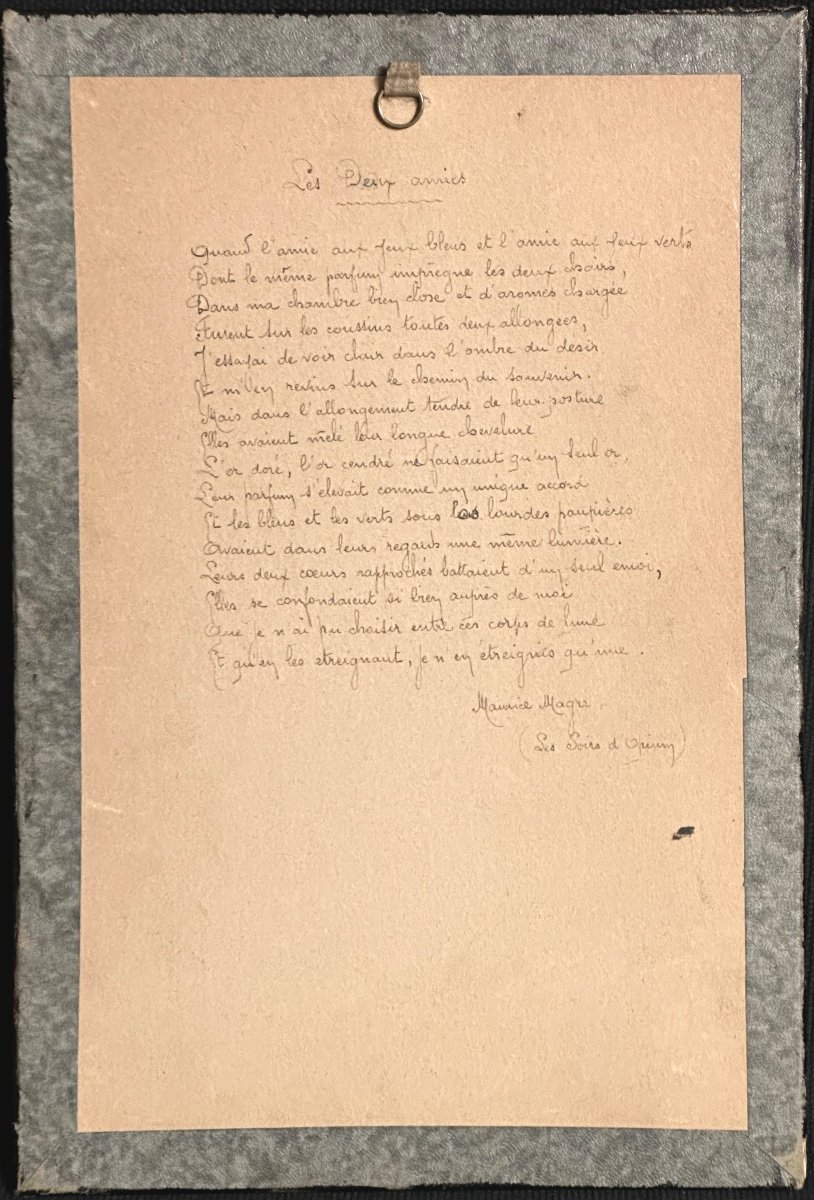 Les Deux amies
Quand l'amie aux yeux bleus et l'amie aux yeux verts
Dont le même parfum imprègne les deux chairs,
Dans ma chambre bien close et d'aromes chargée
Furent sur les coussins toutes deux allongées,
J'essayai de voir clair dans l'ombre du désir
Et m'en revins sur le chemin du souvenir.
Mais dans l'allongement tendre de leur posture
Elles avaient mêlé leur longue chevelure
L'or doré, l'or cendré ne faisaient qu'un seul or,
Leur parfum s'élevait comme un unique accord
Et les bleus et les verts sous les lourdes paupières
Avaient dans leurs regards une même lumière.
Leurs deux cœurs rapprochés battaient d'un seul émoi,
Elles se confondaient si bien auprès de moi
Que je n'ai pu choisir entre ces corps de lune
Et qu'en les etreignant, je n'en étreignis qu'une.
Maurice Magre
(Les Soirs d'Opium)